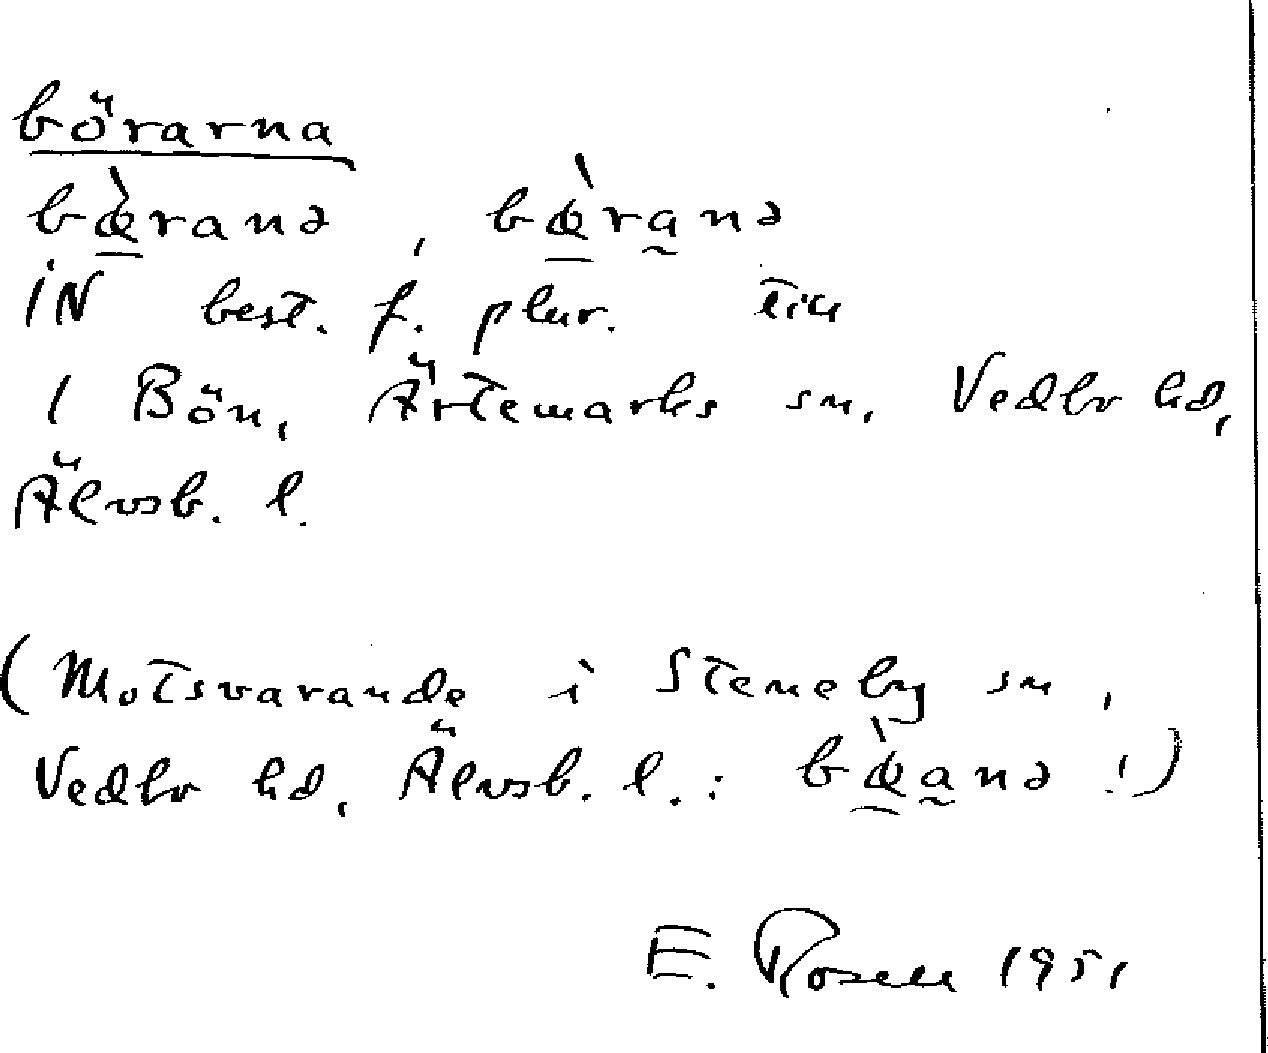 börarna
bœ̀ranə, bœ̀ra̰nə
IN best. f. plur. till
1 Bön, Ärtemarks sn, Vedbo hd,
Älvsb. l.
(Motsvarande i Steneby sn,
Vedbo hd, Älvsb. l.: bœ̀a̰nə!)
E. Rosell 1951